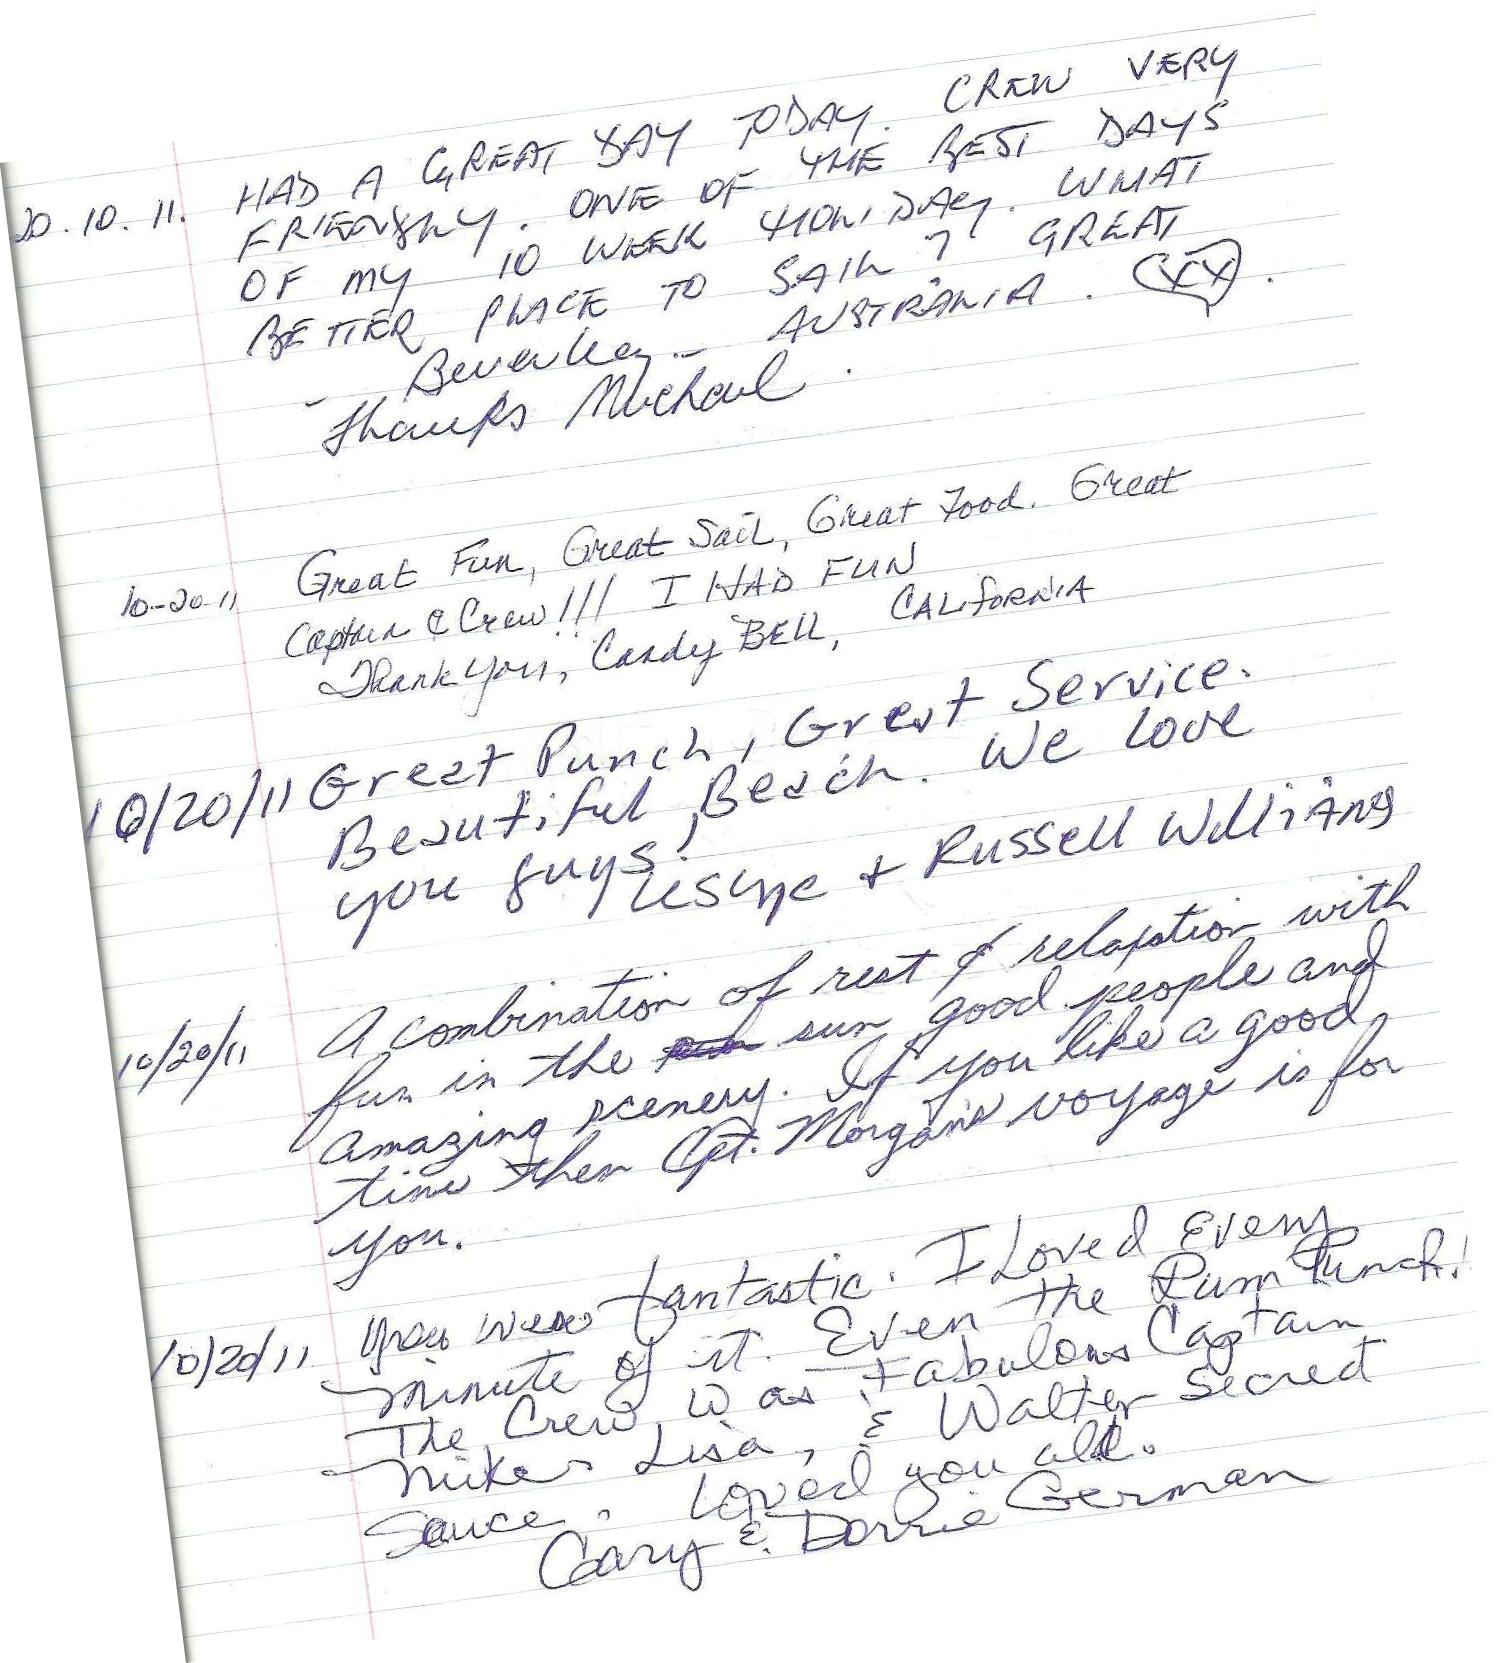 20.10.11. HAD A GREAT DAY TODAY. CREW VERY
FRIENDLY. ONE OF THE BEST DAYS
OF MY 10 WEEK HOLIDAY. WHAT
BETTER PLACE TO SAIL? GREAT
- Beverley - AUSTRALIA. XX.
Thanks Michael.
10-20-11 Great Fun, Great Sail, Great Food. Great
Captain & Crew!!! I HAD FUN
Thank you, Candy BELL, CALIFORNIA
10/20/11 Great Punch, Great Service.
Beautiful Beach. We love
you guys!
+ Russell Williams
10/20/11 A combination of rest & relaxation with
fun in the sun good people and
amazing scenery. If you like a good
time then Cpt. Morgan's voyage is for
you.
10/20/11 You were fantastic. I Loved Every
minute of it. Even the Rum Punch!
The Crew was Fabulous Captain
Mike Lisa, & Walter Secret
Sauce. Loved you all.
Gary & Dorrie German